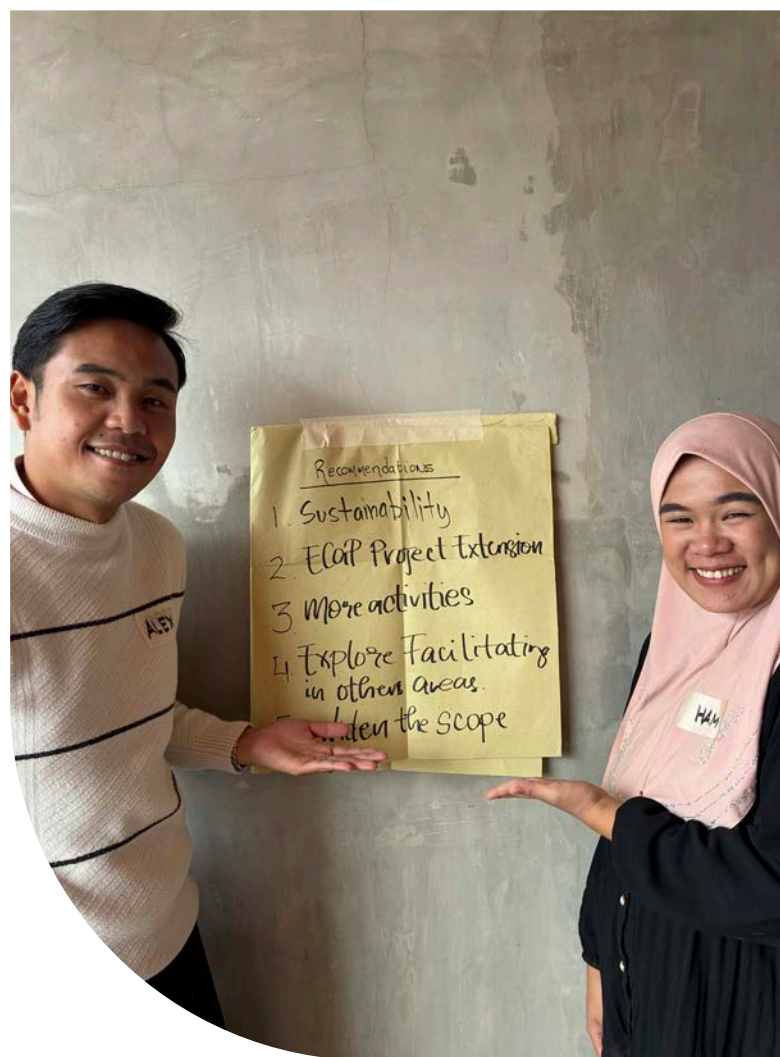 Recommendations
1. Sustainability
2. ECaP Project Extension
3. More activities
4. Explore Facilitating
in others areas.
the scope
ALEX
HAM